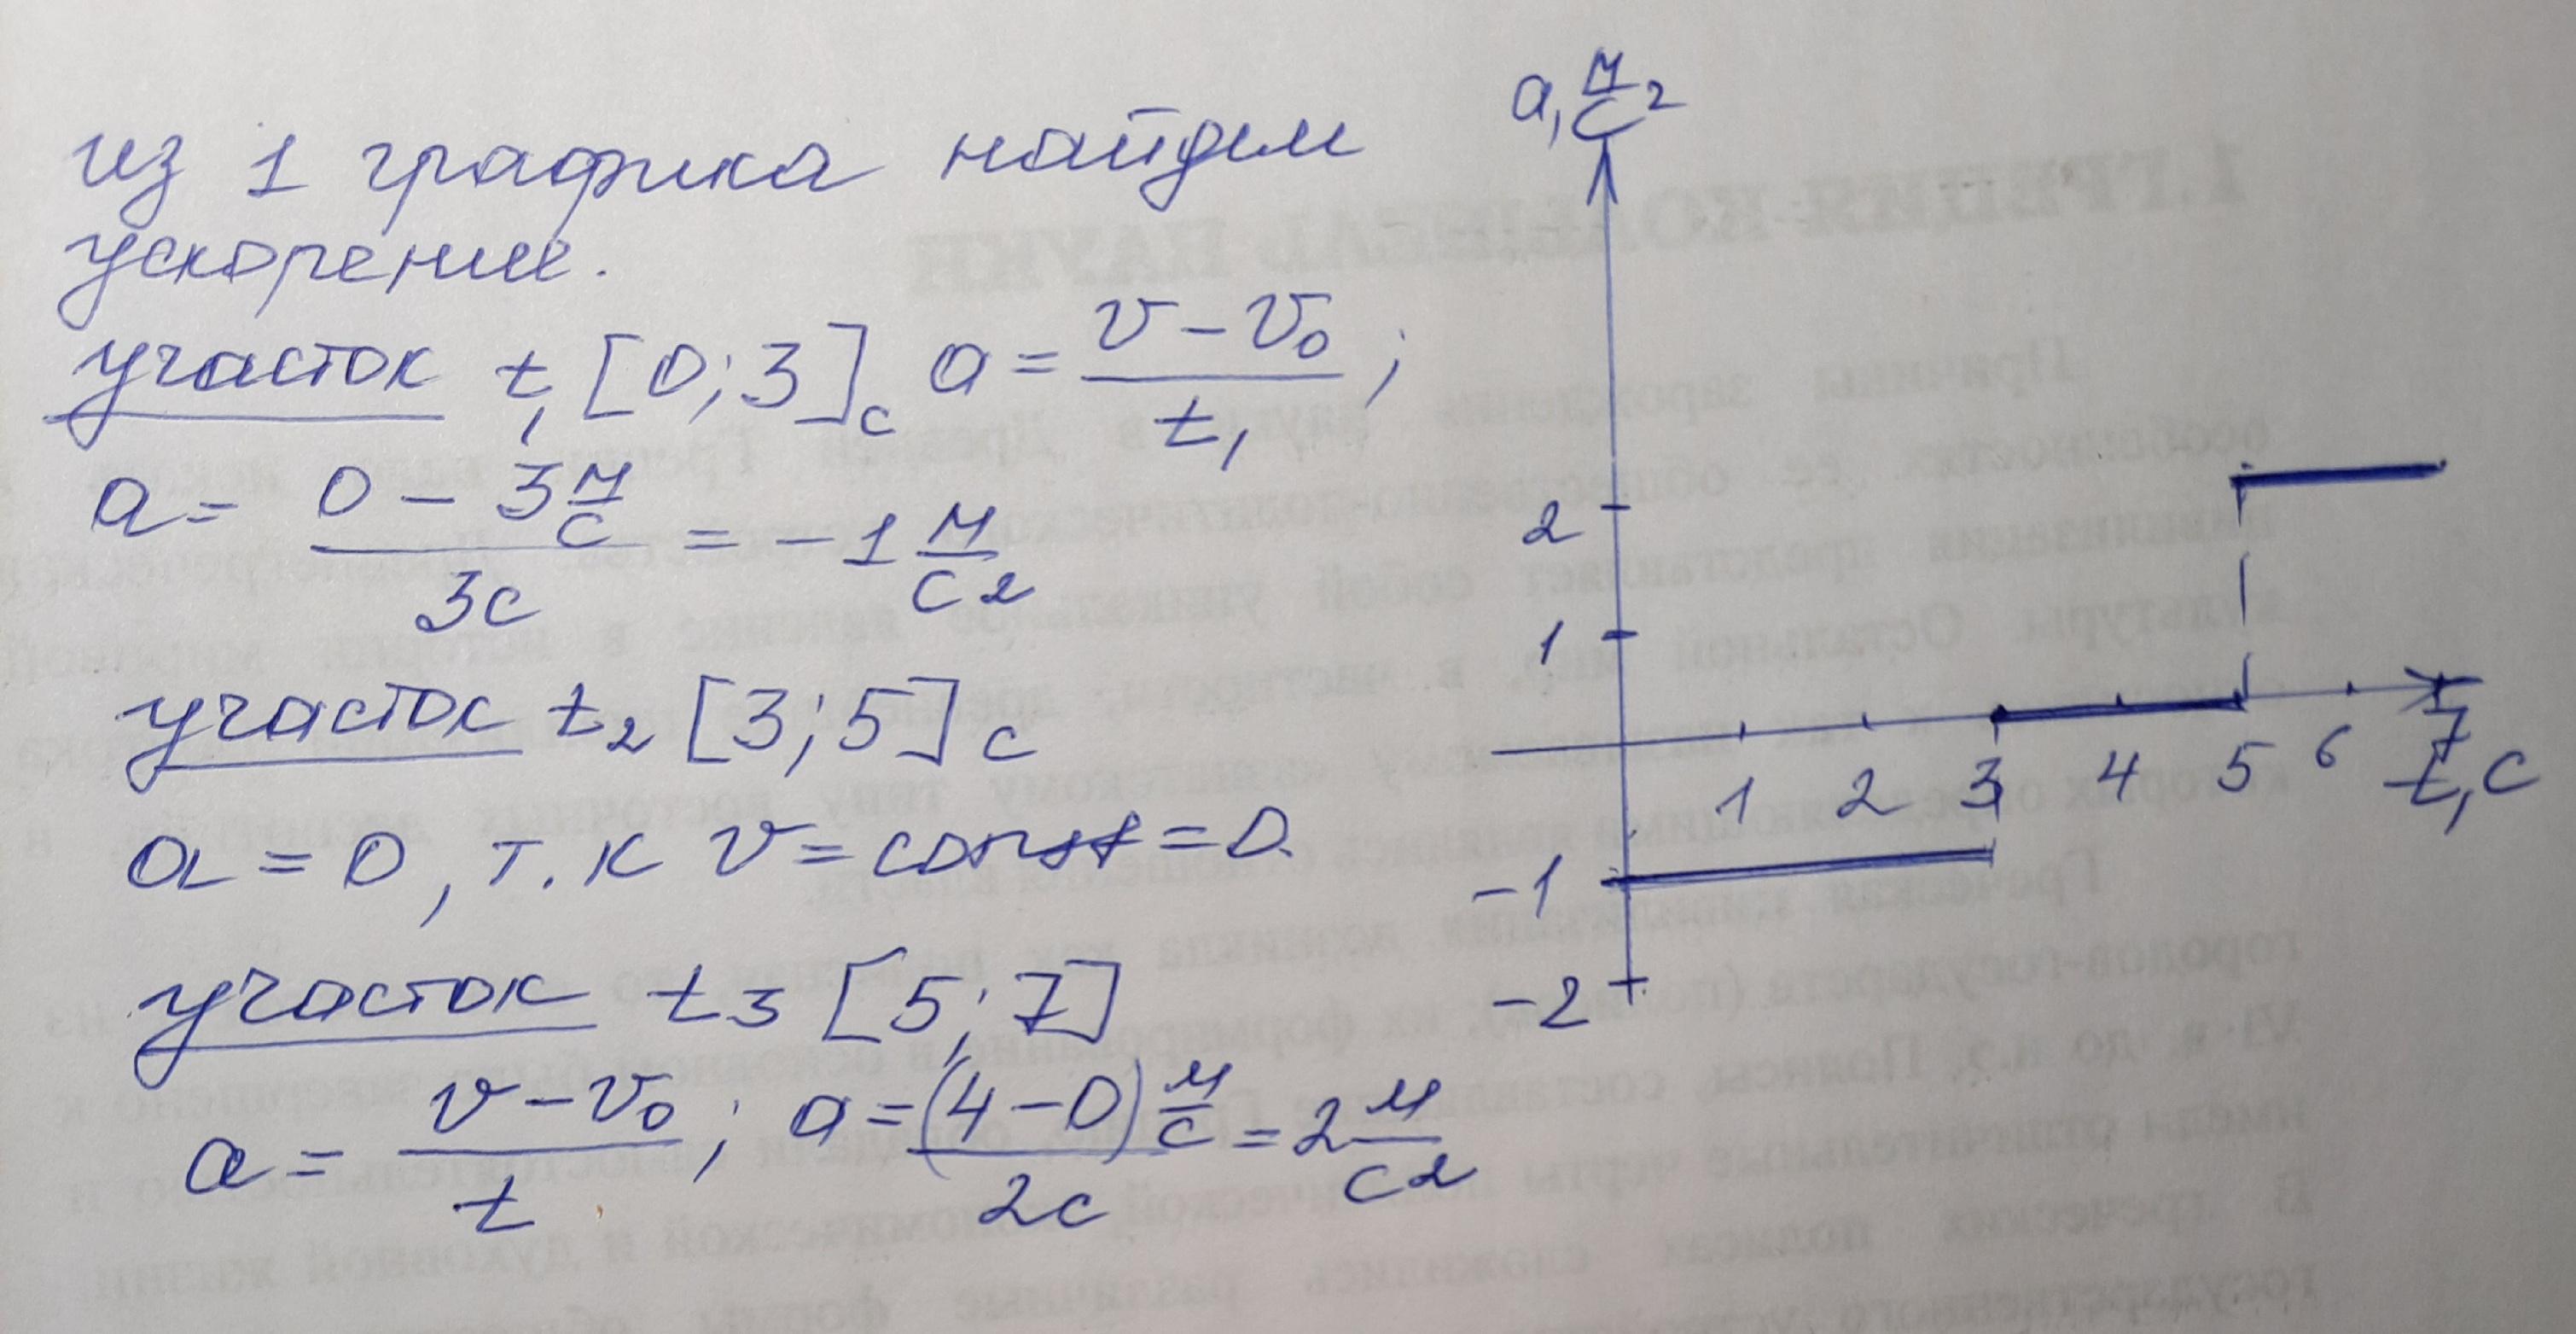 из 1 графика найдем
ускорение.
участок t₁ [0;3]с a = (v - v₀)/t₁;
a = (0 - 3 м/с)/3с = -1 м/с²
участок t₂ [3;5]с
a = 0, т.к v = const = 0
участок t₃ [5;7]
a = (v - v₀)/t; a = (4 - 0) м/с / 2с = 2 м/с²
a, м/с²
2
1
1 2 3 4 5 6 7
t, с
-1
-2